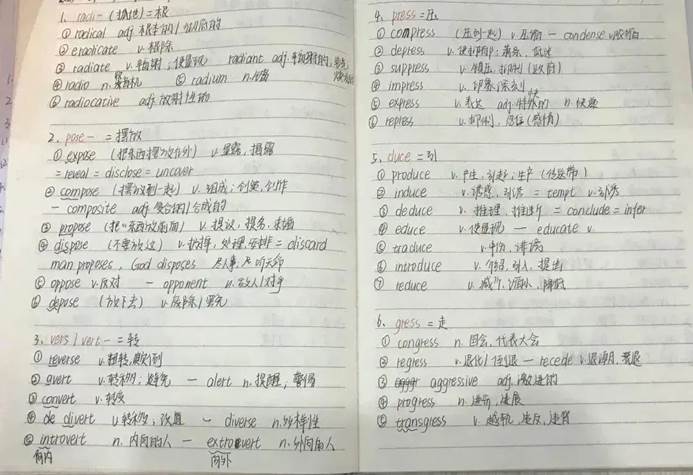 1. radi- (拔地)=根
① radical adj. 根本的/彻底的
② eradicate v. 根除
③ radiate v. 辐射; 使显现 radiant adj.
④ radio n. 收音机 ⑤ radium n. 镭
⑥ radiocative adj. 放射性的
2. pose- = 摆放
① expose (把东西摆放在外) v. 显露, 揭露
= reveal = disclose = uncover
② compose (摆放到一起) v. 组成; 创造, 创作
— composite adj. 复合的/合成的
③ propose (把东西放前面) v. 提议, 提名, 求婚
④ dispose (不要放过) v. 处理, 安排 = discard
man proposes, God disposes 尽人事, 听天命
⑤ oppose v. 反对 — opponent n. 敌人/对手
⑥ depose (放下去) v. 废除/罢免
3. vers/vert- = 转
① reverse v. 翻转, 颠倒
② avert v. 转移; 避免 — alert n. 提醒, 警惕
③ convert v. 转变
④ divert v. 转移, 改道 — diverse n. 多样性
⑤ introvert n. 内向的人 — extrovert n. 外向的人
向内 向外
4. press = 压
① compress (压到一起) v. 压缩 — condense v. 浓缩
② depress v. 使抑郁; 萧条
③ suppress v. 镇压, 抑制 (政府)
④ impress v. 印象深刻
⑤ express v. 表达 adj. 特快的 n. 快递
⑥ repress v. 抑制, 忍住 (感情)
5. duce = 引
① produce v. 产生, 引起; 生产
② induce v. 诱惑, 引诱 = tempt v. 引诱
③ deduce v. 推理, 推断 = conclude = infer
④ educe v. 使显现 — educate v.
⑤ traduce v. 中伤, 诽谤
⑥ introduce v. 介绍, 引入, 提出
⑦ reduce v. 减少
6. gress = 走
① congress n. 国会, 代表大会
② regress v. 退化/倒退 — recede v.
③ aggressive adj. 激进的
④ progress n. 进步, 进展
⑤ transgress v. 越轨, 违反, 违背